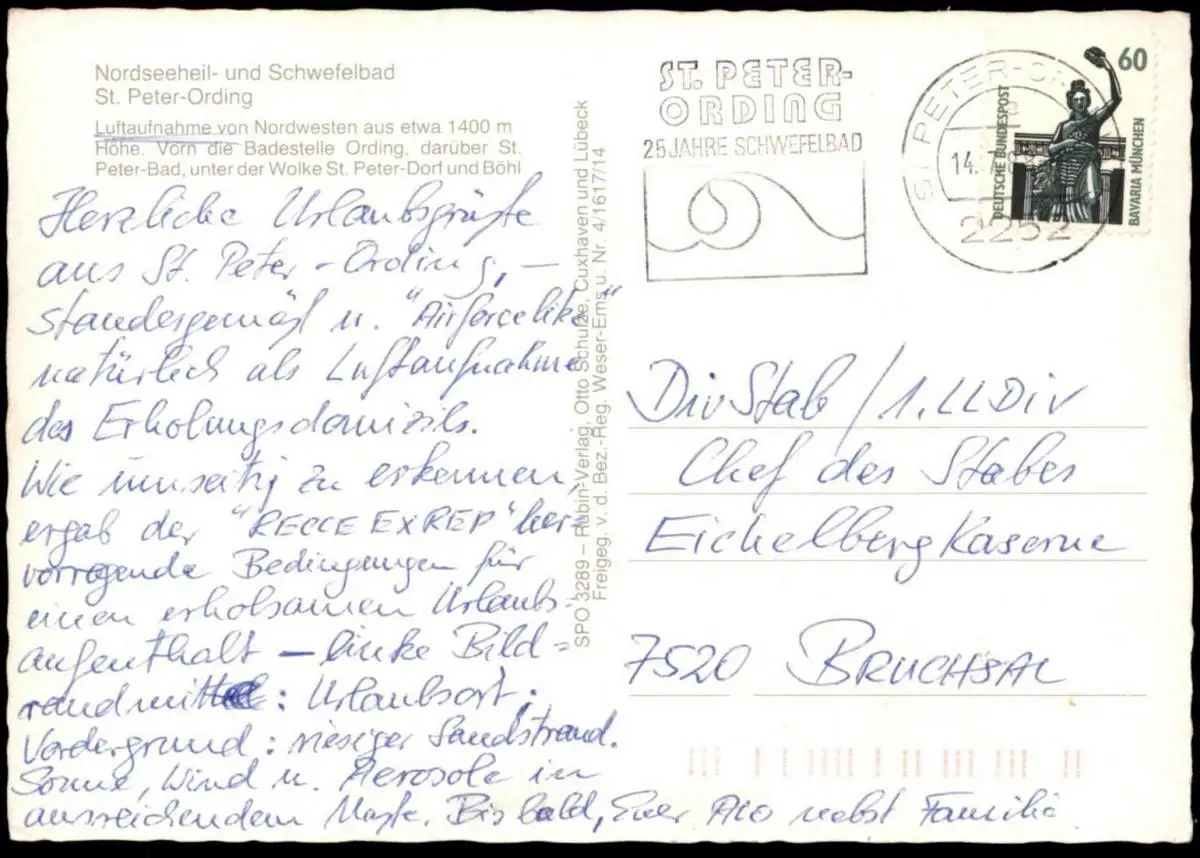 Nordseeheil- und Schwefelbad
St. Peter-Ording
Luftaufnahme von Nordwesten aus etwa 1400 m
Höhe. Vorn die Badestelle Ording, darüber St.
Peter-Bad, unter der Wolke St. Peter-Dorf und Böhl
Herzliche Urlaubsgrüße
aus St. Peter-Ording, –
standesgemäß u. "Airforcelike"
natürlich als Luftaufnahme
des Erholungsdomizils.
Wie umseitig zu erkennen,
ergab der "RECCE EXREP" her-
vorragende Bedingungen für
einen erholsamen Urlaubs-
aufenthalt – linke Bild=
randmitte: Urlaubsort;
Vordergrund: riesiger Sandstrand.
Sonne, Wind u. Aerosole in
ausreichendem Maße. Bis bald, Euer ALO nebst Familie
SPO 3289 – Rubin-Verlag, Otto Schulze, Cuxhaven und Lübeck
Freigeg. v. d. Bez.-Reg. Weser-Ems u. Nr. 4/1617/14
ST. PETER-
ORDING
25 JAHRE SCHWEFELBAD
ST PETER-OR
14.7
2252
60
DEUTSCHE BUNDESPOST
BAVARIA MÜNCHEN
DivStab / 1. LLDiv
Chef des Stabes
Eichelberg Kaserne
7520 BRUCHSAL